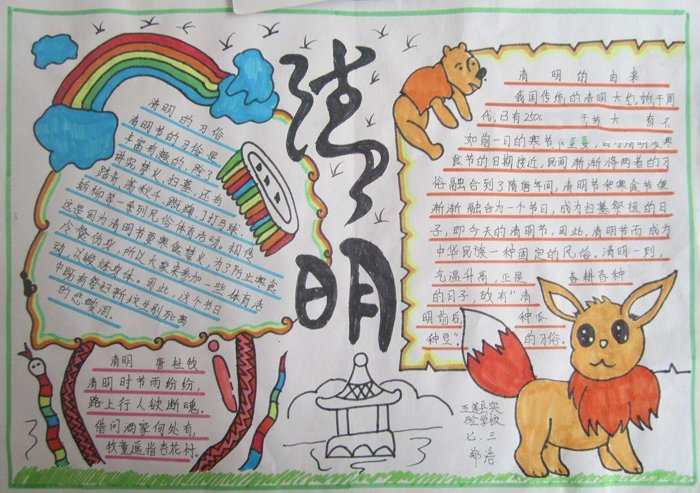 清明
清明的习俗
清明节的习俗是
丰富有趣的,除了
讲究禁火、扫墓,还有
踏青、荡秋千、蹴踘、打马球、
插柳等一系列风俗体育活动。相传
这是因为清明节要寒食禁火,为了防止寒食
冷餐伤身,所以大家来参加一些体育活
动,以锻炼身体。因此,这个节日
中既有祭扫新坟生别死离
的悲酸泪。
清明 唐 杜牧
清明时节雨纷纷,
路上行人欲断魂。
借问酒家何处有,
牧童遥指杏花村。
清明的由来
我国传统的清明大约始于周
代,已有250
如前一日的寒
食节的日期接近,民间渐渐将两者的习
俗融合到了隋唐年间,清明节和寒食节便
渐渐融合为一个节日,成为扫墓祭祖的日
子,即今天的清明节。因此,清明节而成为
中华民族一种固定的风俗。清明一到,
气温升高,正是 春耕春种
的日子 故有“清
明前后, 种瓜
种豆”。 的习俗。
五莲县实
验学校
七.三
郑浩